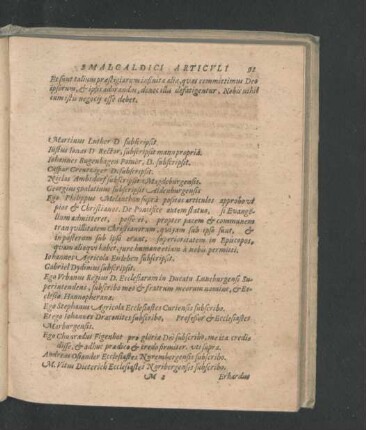 SMALCALDICI ARTICVLI 91
Et sunt talium præstigiarum infinita alia, quas committimus Deo
ipsorum, & ipsis adorandas, donec illis defatigentur. Nobis nihil
cum istis negocij esse debet.
Martinus Luther D. subscripsit.
Iustus Ionas D. Rector, subscripsit manu propria.
Iohannes Bugenhagen Pomer, D. subscripsit.
Caspar Creutziger D. subscripsit.
Nicolaus Ambsdorf subscripsit Magdeburgensis.
Georgius Spalatinus subscripsit Aldenburgensis
Ego Philippus Melancthon suprà positos articulos approbo vt
pios & Christianos. De Pontifice autem statuo, si Euangelium
admitteret, posse ei, propter pacem & communem
tranquillitatem Christianorum, qui iam sub ipso sunt, &
in posterum sub ipso erunt, superioritatem in Episcopos,
quam alioqui habet, iure humano etiam à nobis permitti.
Iohannes Agricola Eisleben subscripsit.
Gabriel Dydimus subscripsit.
Ego Vrbanus Regius D. Ecclesiarum in Ducatu Luneburgensi Superintendens,
subscribo meo & fratrum meorum nomine, & Ecclesiæ
Hannopheranæ.
Ego Stephanus Agricola Ecclesiastes Curiensis subscribo.
Et ego Iohannes Draconites subscribo, Professor & Ecclesiastes
Marburgensis.
Ego Chunradus Figenbotz pro gloria Dei subscribo, me ita credidisse,
& adhuc prædico & credo firmiter, vti supra.
Andreas Osiander Ecclesiastes Nurenburgensis subscribo.
M. Vitus Dieterich Ecclesiastes Noribergensis subscribo.
M 2 Erhardus